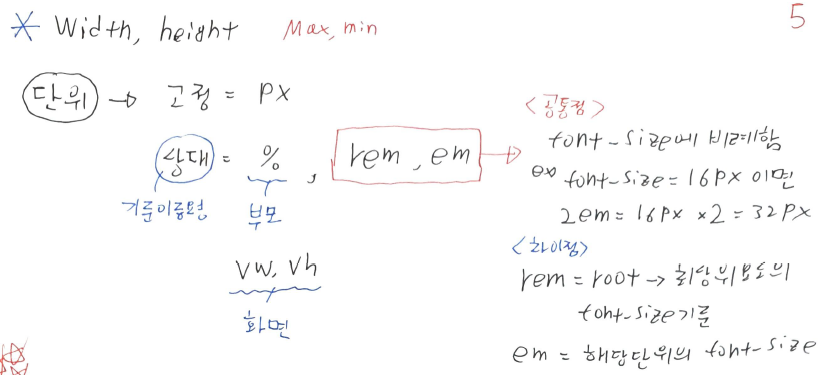 * Width, height Max, min 5
단위 → 고정 = px
상대 = %, rem, em
기준이 필요 부모
vw, vh
화면
<공통점>
font-size에 비례함
ex) font-size = 16px 이면
2em = 16px × 2 = 32px
<차이점>
rem = root → 최상위 의
font-size 기준
em = 해당단위의 font-size